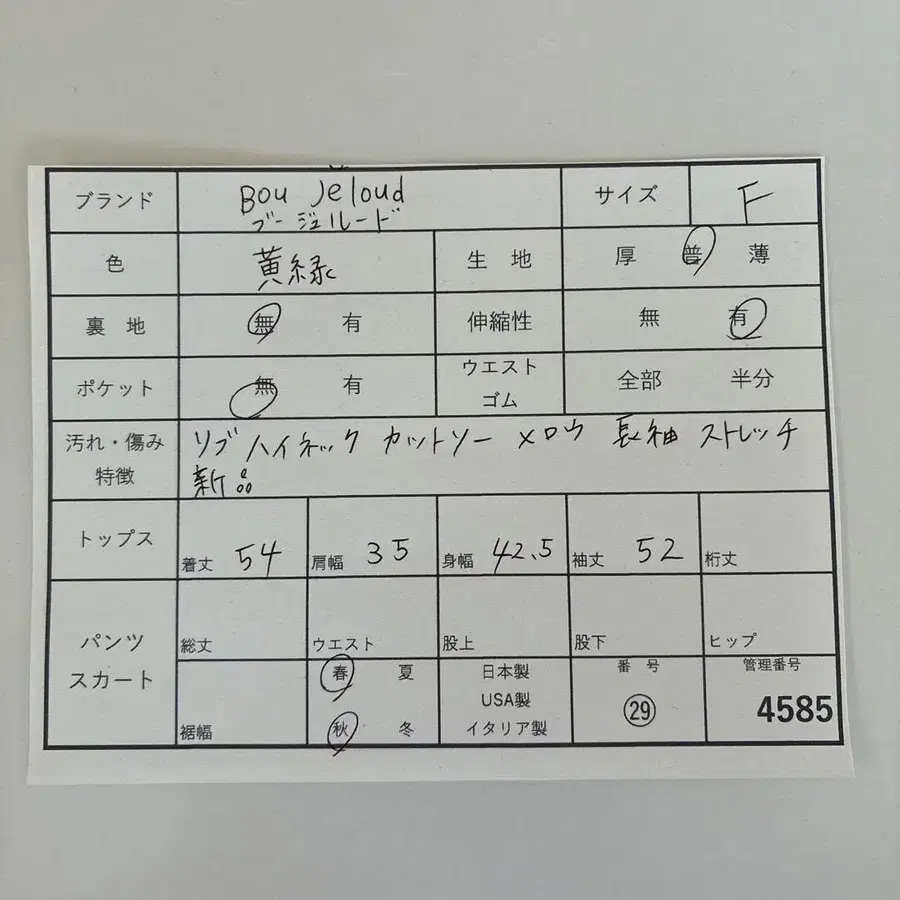 ブランド Bou Jeloud サイズ F
ブージェルード
色 黄緑 生地 厚 普 薄
裏地 無 有 伸縮性 無 有
ポケット 無 有 ウエスト 全部 半分
ゴム
汚れ・傷み リブ ハイネック カットソー メロウ 長袖 ストレッチ
特徴 新品
トップス 着丈 54 肩幅 35 身幅 42.5 袖丈 52 裄丈
パンツ 総丈 ウエスト 股上 股下 ヒップ
スカート 裾幅 春 夏 日本製 番号 管理番号
USA製 29 4585
秋 冬 イタリア製